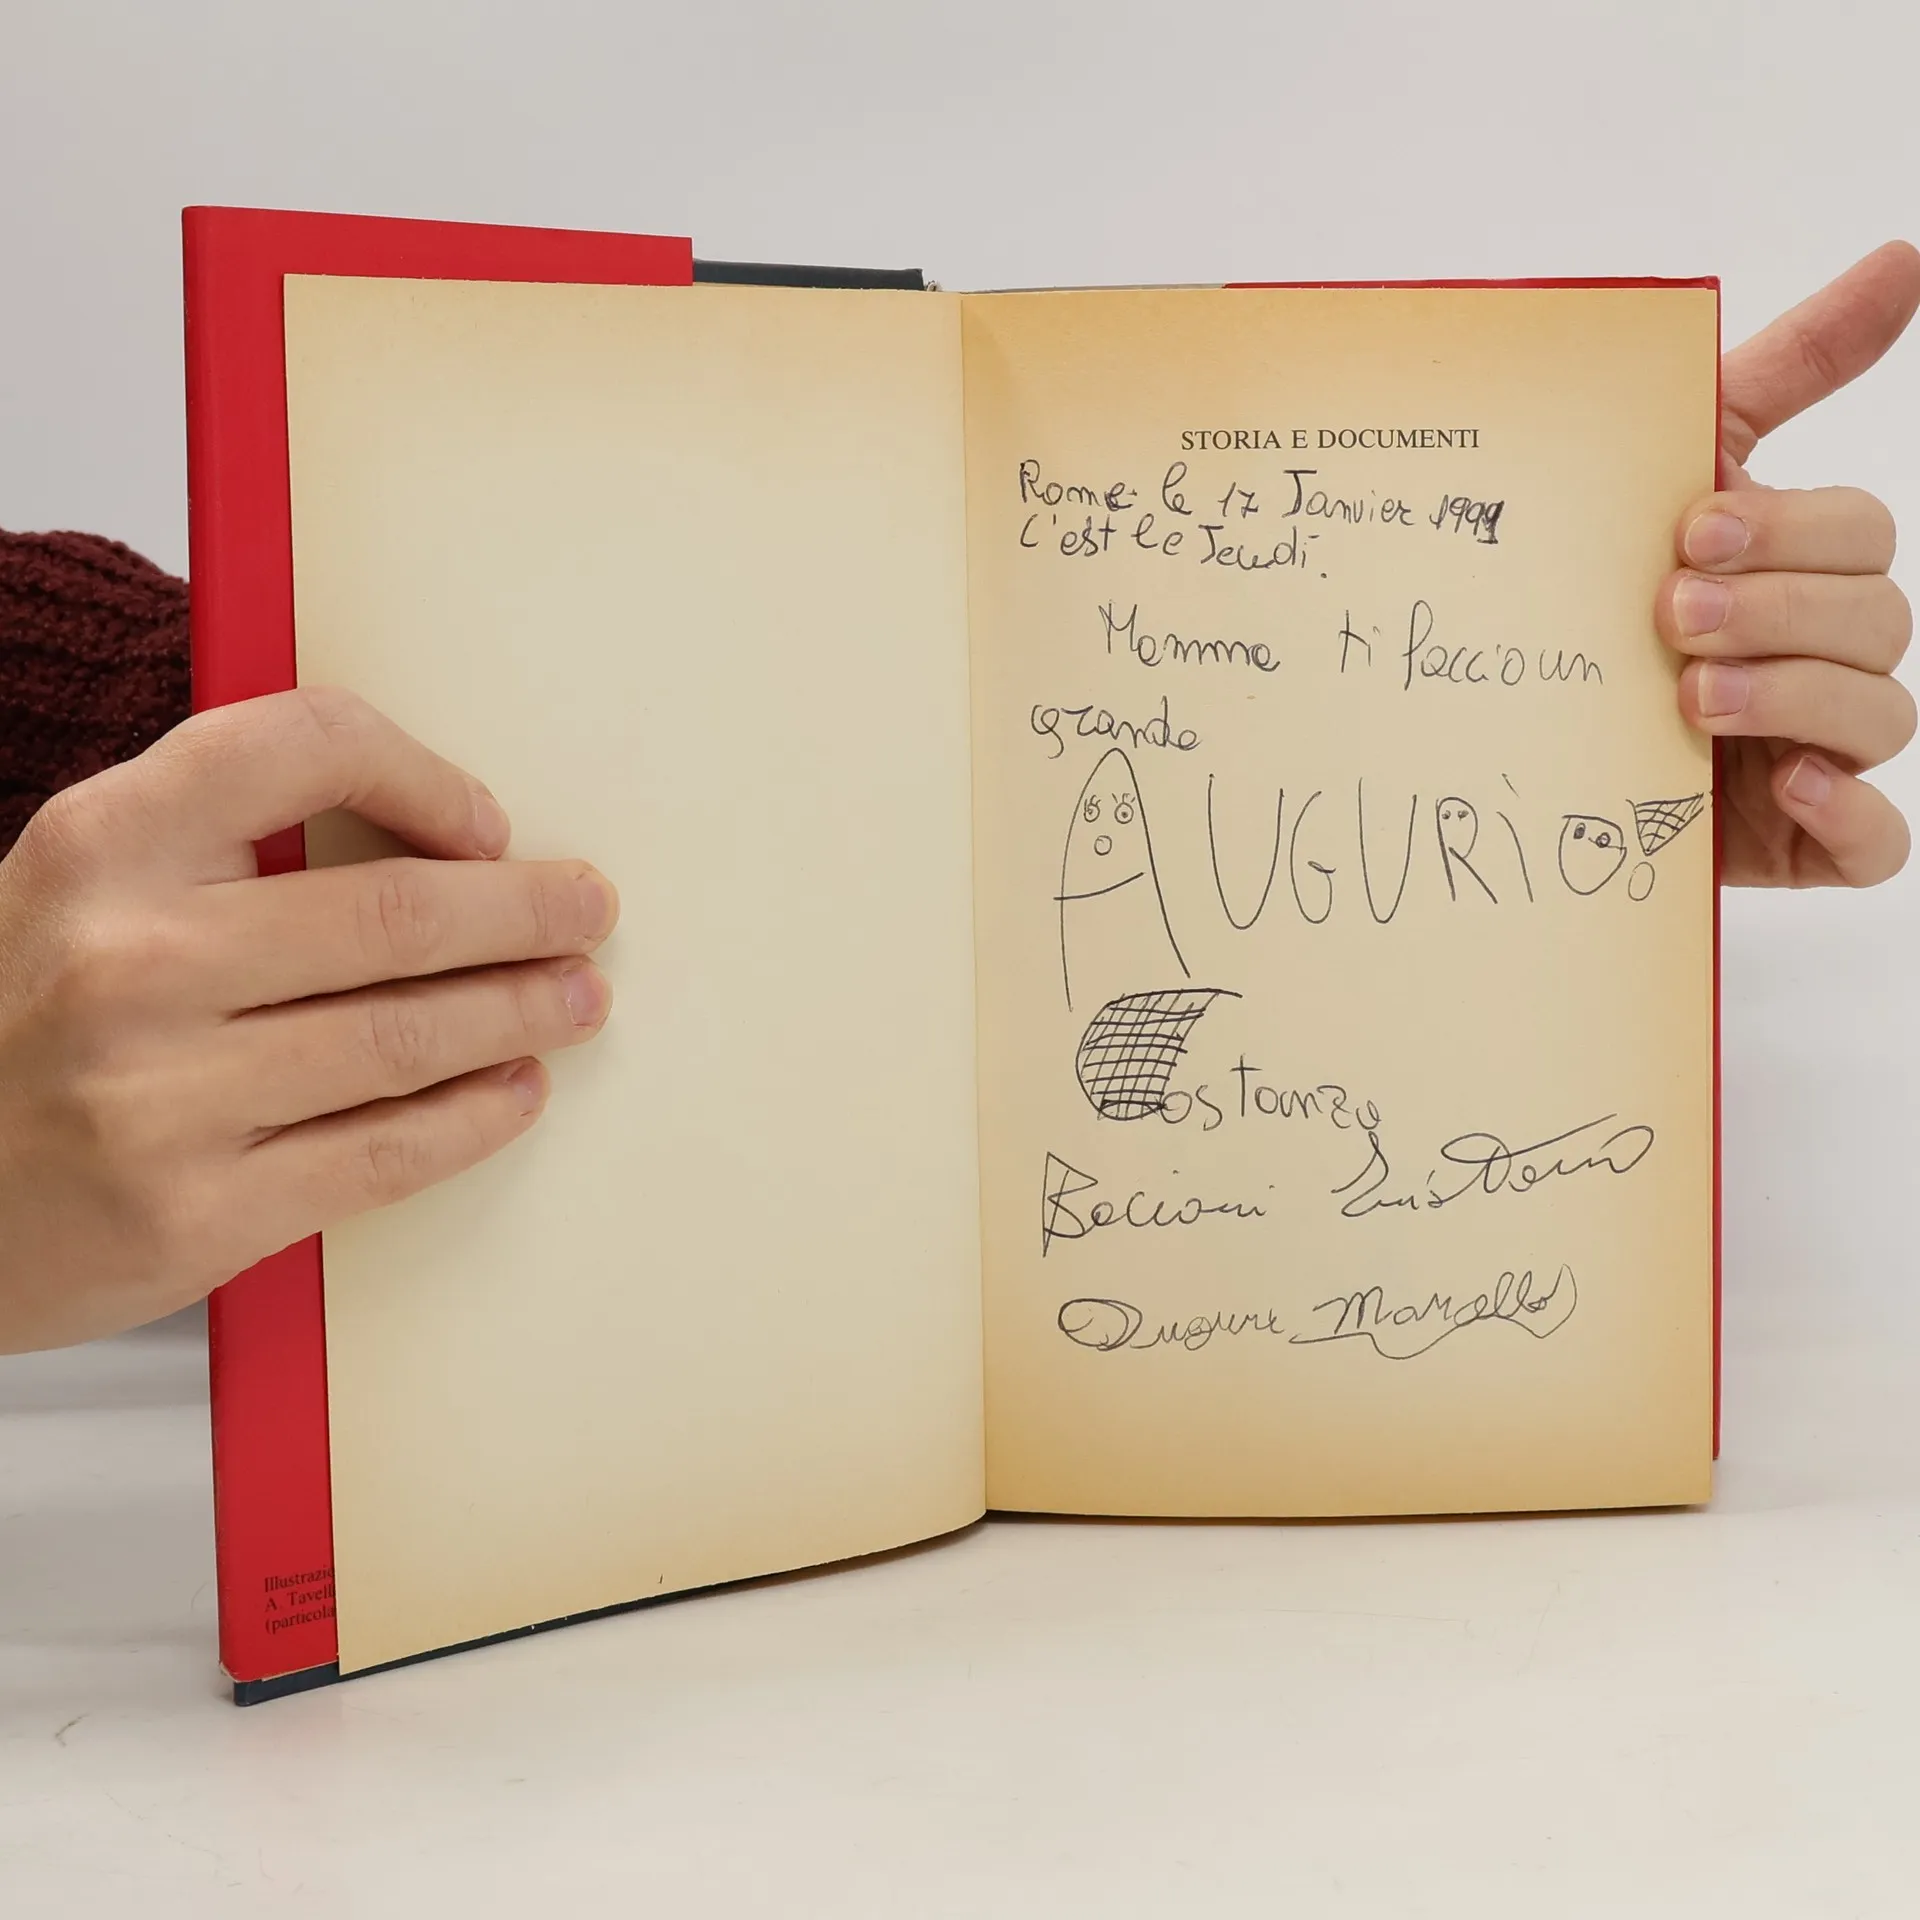 STORIA E DOCUMENTI
Rome le 17 Janvier 1991
C'est le Jeudi.
Mamma ti faccio un
grande
AUGURIO!
Costanza
Bacioni
Auguri Marcello
Illustrazio
A. Tavell
(particola